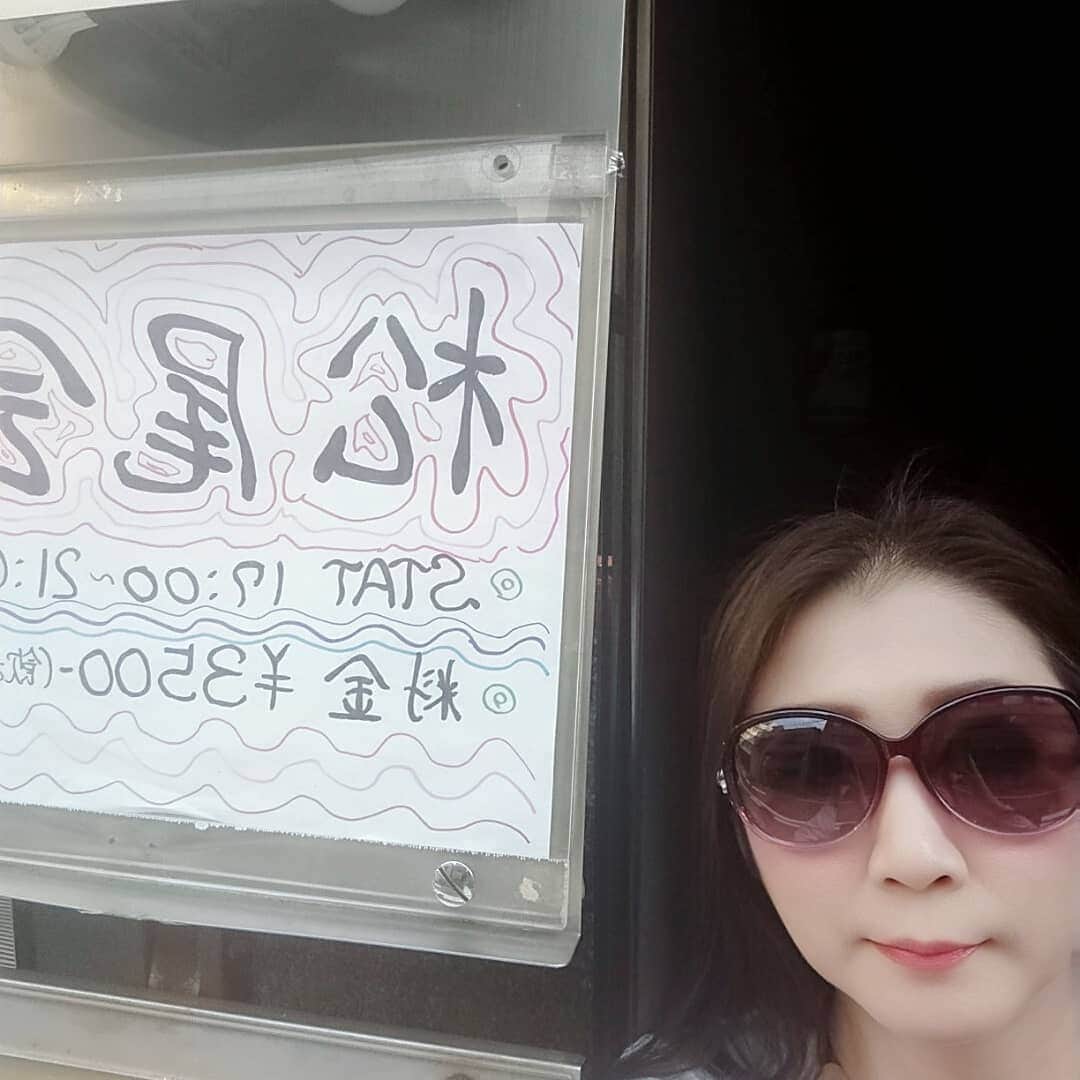 松尾会
◎ STAT 17:00~21:0
◎ 料金 ¥3500-(飲